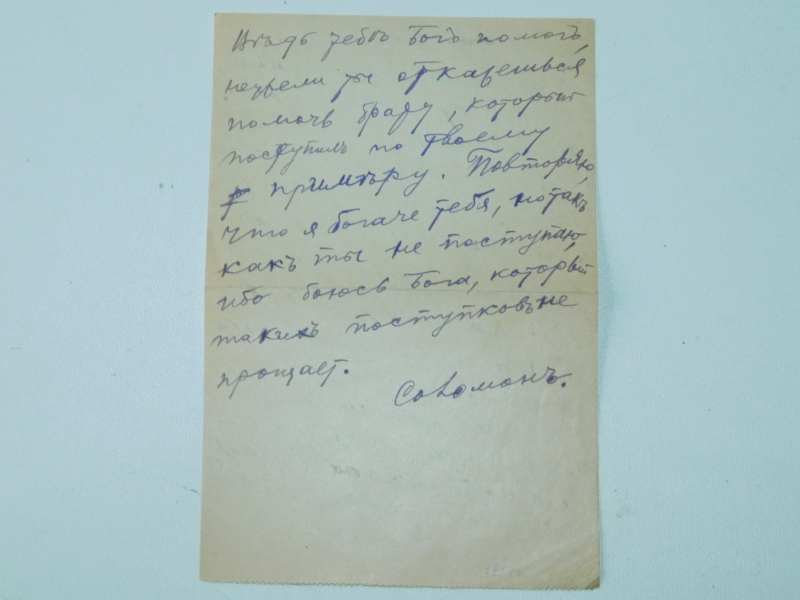 Вѣдь тебѣ Богъ помогъ,
неужели ты откажешься
помочь брату, который
поступилъ по твоему
примѣру. Повторяю,
что я богаче тебя, но такъ
какъ ты не поступаю,
ибо боюсь Бога, который
такихъ поступковъ не
прощает.
Соломонъ.